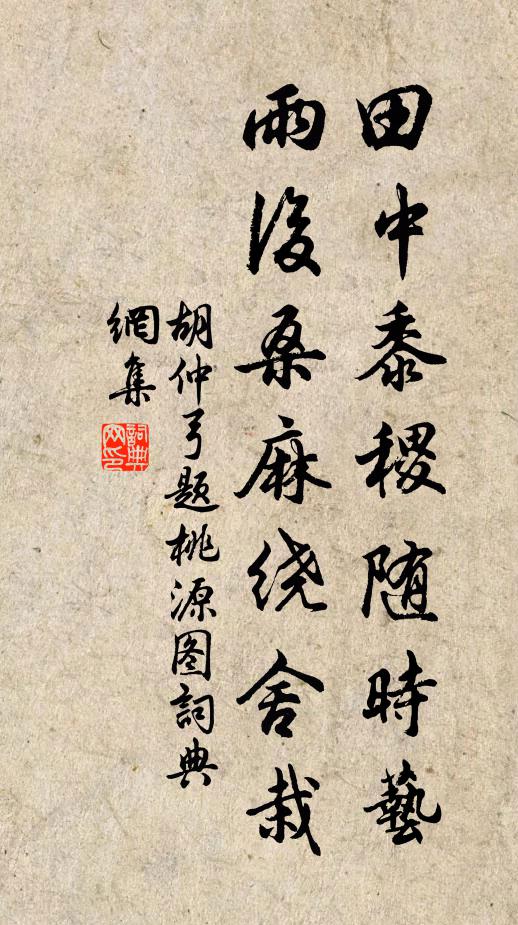 田中黍稷随時藝
雨後桑麻绕舍栽
胡仲弓题桃源图詞典
網集
詞典
网印